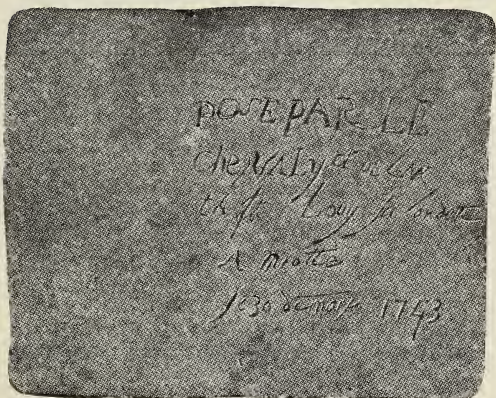 POSE PAR LE
CheVALyet de Lav
Louy la Londette
A Miotte
Le 30 de mars 1743